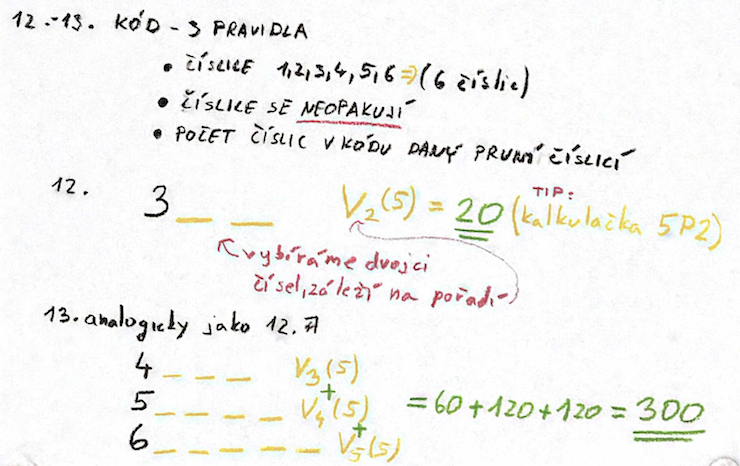 12.-13. KÓD - 3 PRAVIDLA
• ČÍSLICE 1,2,3,4,5,6 => (6 číslic)
• ČÍSLICE SE NEOPAKUJÍ
• POČET ČÍSLIC V KÓDU DANÝ PRVNÍ ČÍSLICÍ
12. 3 _ _ V₂(5) = 20 (kalkulačka 5P2)
TIP:
vybíráme dvojci
čísel, záleží na pořadí
13. analogicky jako 12. A
4 _ _ _ V₃(5)
+
5 _ _ _ _ V₄(5) = 60 + 120 + 120 = 300
+
6 _ _ _ _ _ V₅(5)